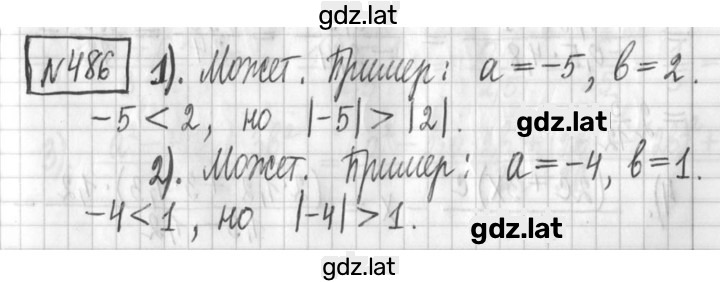 gdz.lat
№486 1). Может. Пример: a = -5, b = 2.
-5 < 2, но |-5| > |2|. gdz.lat
2). Может. Пример: a = -4, b = 1.
-4 < 1, но |-4| > 1. gdz.lat
gdz.lat